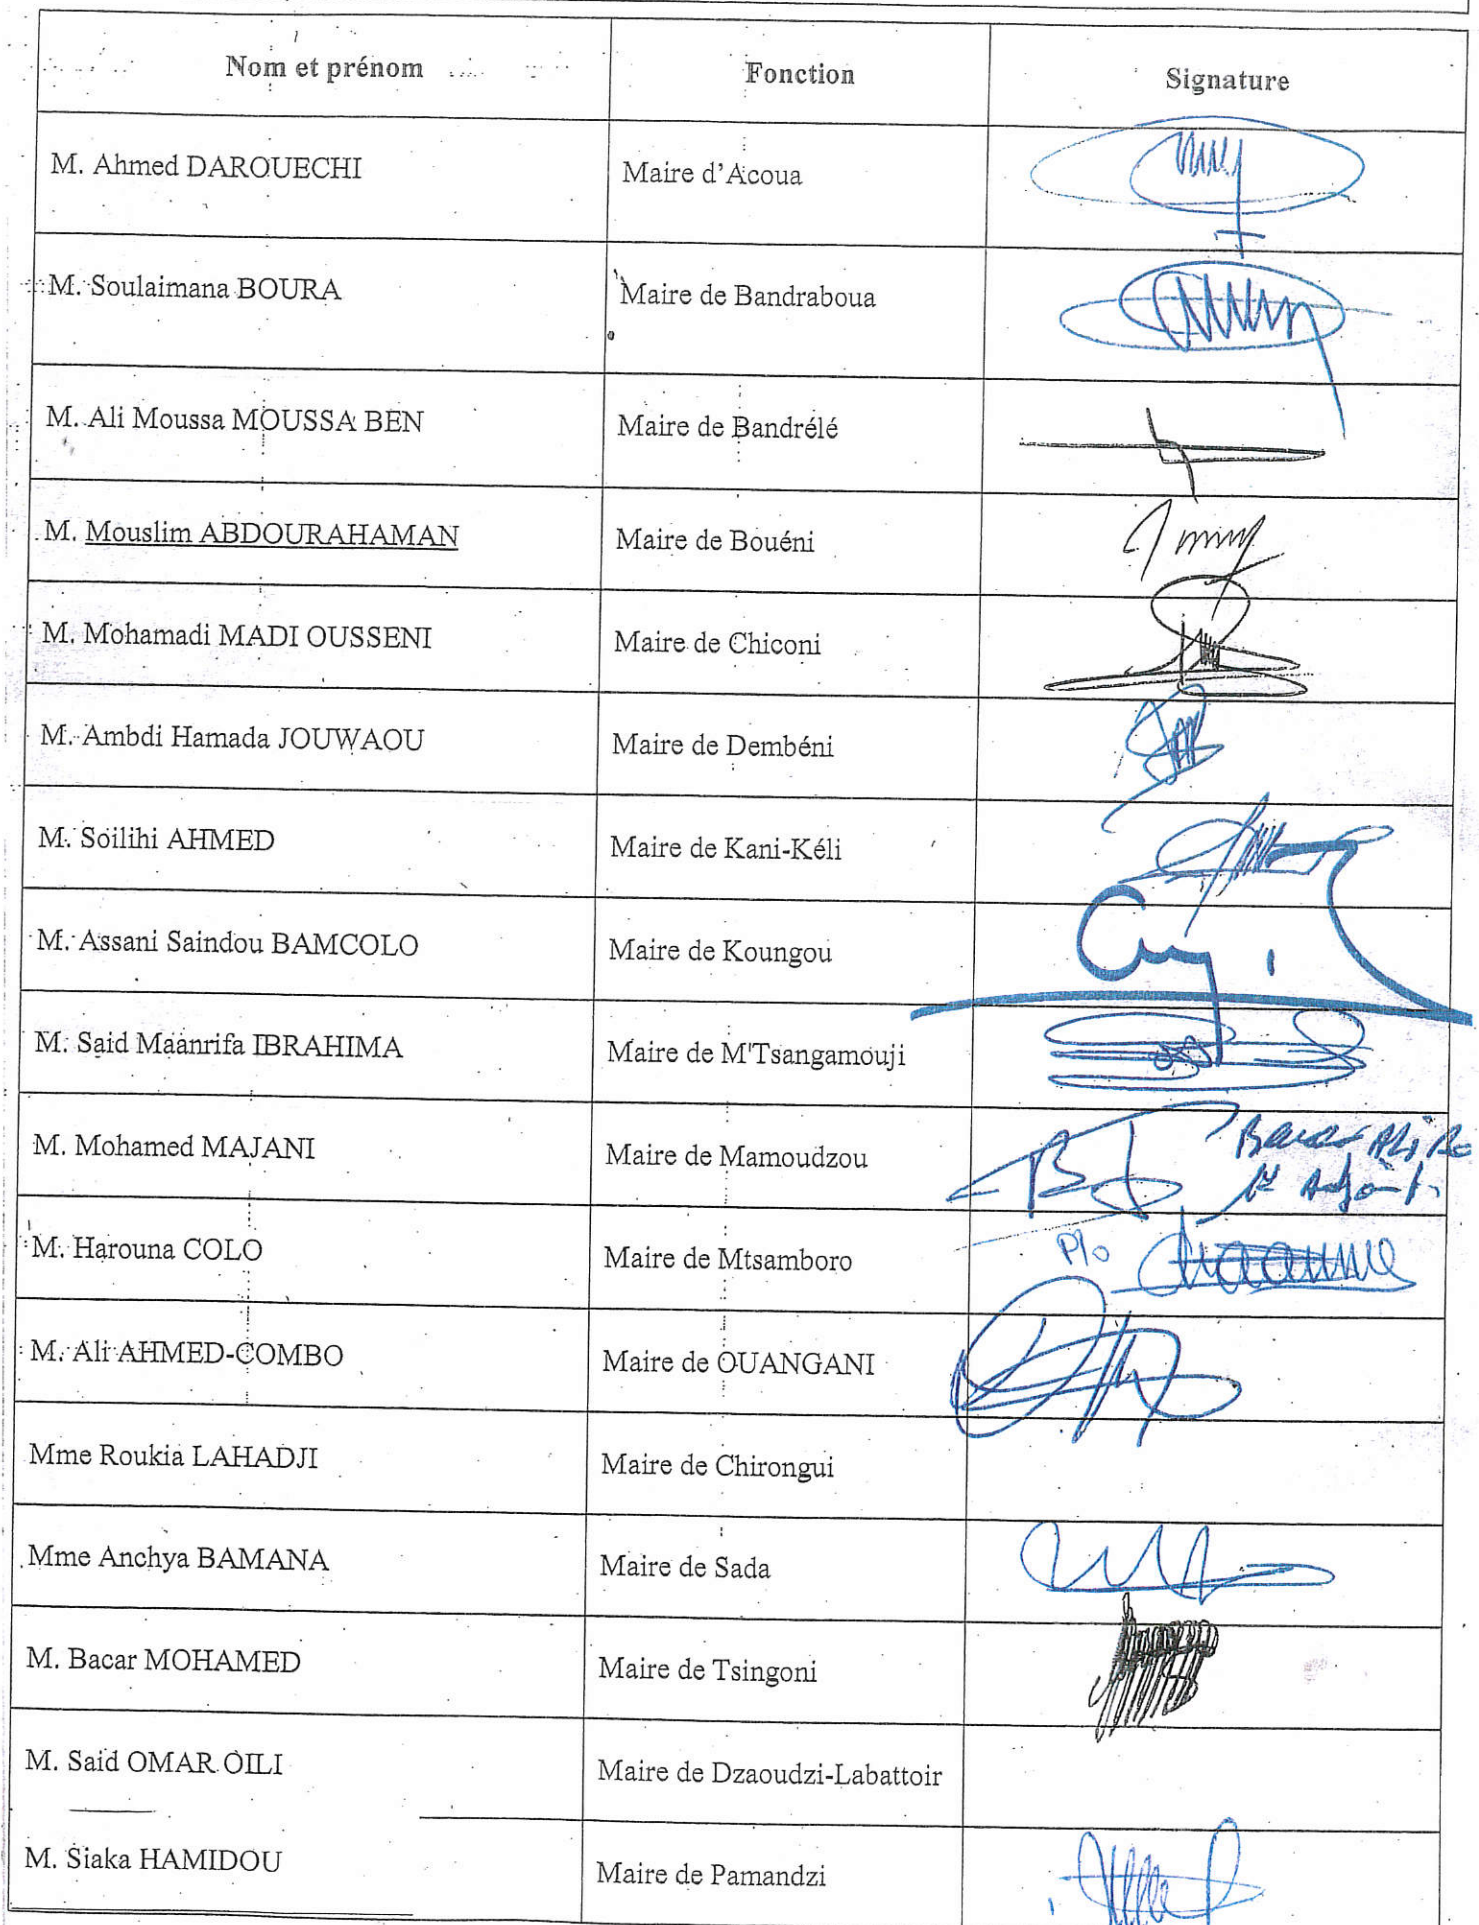 Nom et prénom Fonction Signature
M. Ahmed DAROUECHI Maire d'Acoua
M. Soulaimana BOURA Maire de Bandraboua
M. Ali Moussa MOUSSA BEN Maire de Bandrélé
M. Mouslim ABDOURAHAMAN Maire de Bouéni
M. Mohamadi MADI OUSSENI Maire de Chiconi
M. Ambdi Hamada JOUWAOU Maire de Dembéni
M. Soilihi AHMED Maire de Kani-Kéli
M. Assani Saindou BAMCOLO Maire de Koungou
M. Said Maanrifa IBRAHIMA Maire de M'Tsangamouji
M. Mohamed MAJANI Maire de Mamoudzou
M. Harouna COLO Maire de Mtsamboro P/o
M. Ali AHMED-COMBO Maire de OUANGANI
Mme Roukia LAHADJI Maire de Chirongui
Mme Anchya BAMANA Maire de Sada
M. Bacar MOHAMED Maire de Tsingoni
M. Said OMAR OILI Maire de Dzaoudzi-Labattoir
M. Siaka HAMIDOU Maire de Pamandzi